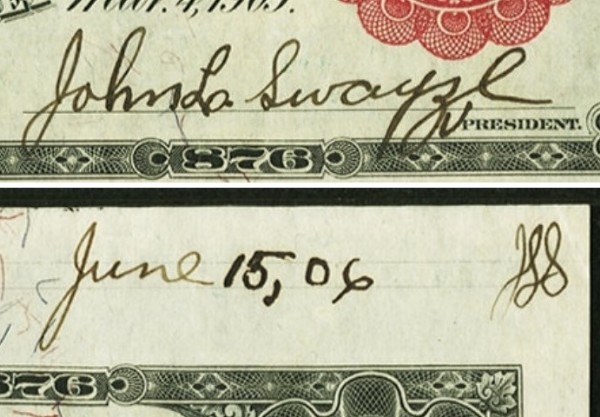 Mar. 4, 1905.
John L. Swayze
PRESIDENT.
876
June 15, 06
JLS
876